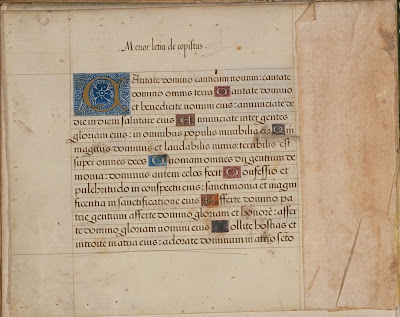 Menor letra de copistas.
Cantate domino canticum novum: cantate
domino omnis terra Cantate domino
et benedicite nomini eius: annunciate de
die in diem salutare eius Annunciate inter gentes
gloriam eius: in omnibus populis mirabilia eius Quoniam
magnus dominus et laudabilis nimis: terribilis est
super omnes deos Quoniam omnes dii gentium de
monia: dominus autem celos fecit Confessio et
pulchritudo in conspectu eius: sanctimonia et magni
ficentia in sanctificatione eius Afferte domino pa
trie gentium afferte domino gloriam et honorē: affer
te domino gloriam nomini eius Tollite hostias et
introite in atria eius: adorate dominum in atrio scto